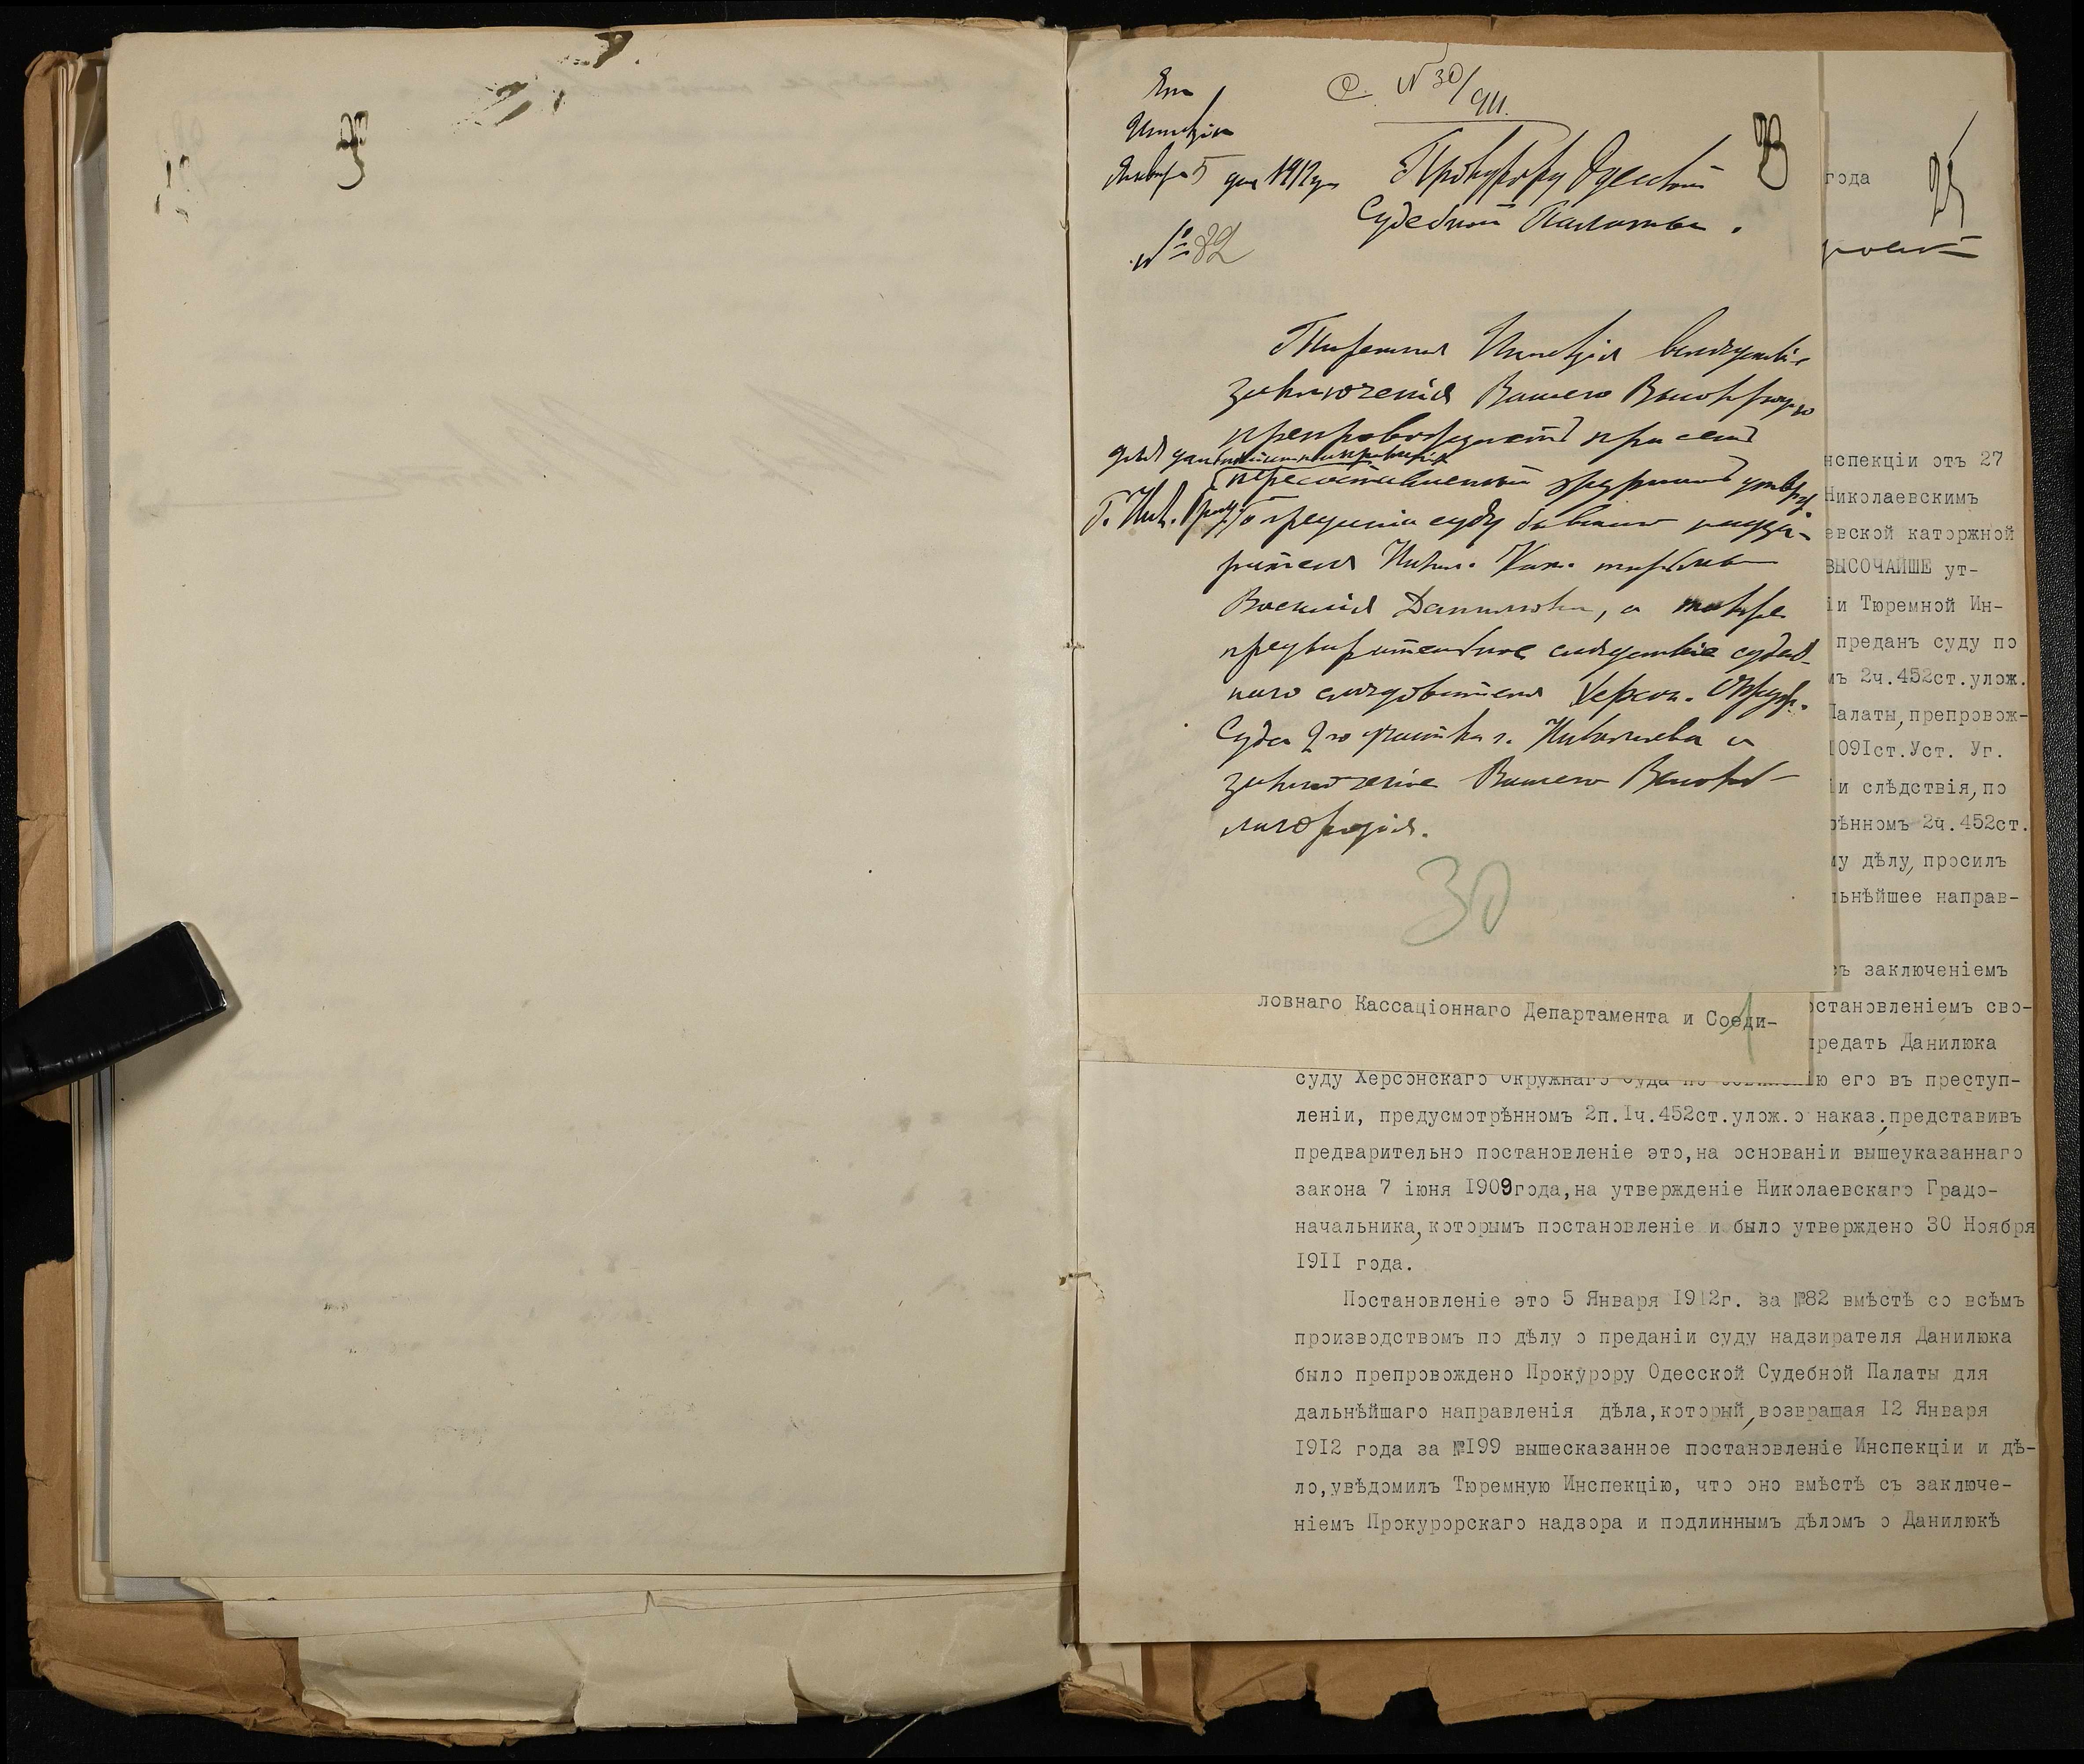 С. N 30/911.
23
Января 5 дня 1912 г.
№ 82
Прокурору Одесской
Судебной Палаты.
Тюремная Инспекція вслѣдствіе
заключенія Вашего
препровождаетъ при семъ
для
преданіи суду бывшаго надзи-
рателя Никол. Кат. тюрьмы
Василія Данилюка, а также
предварительное слѣдствіе судеб-
наго слѣдователя Херсон. Окруж.
Суда 2го участка г. Николаева и
заключеніе Вашего Высокоб-
лагородія.
30
ловнаго Кассаціоннаго Департамента и Соеди-
года
25
нспекціи отъ 27
Николаевскимъ
евской каторжной
ВЫСОЧАЙШЕ ут-
іи Тюремной Ин-
преданъ суду по
мъ 2ч.452ст.улож.
Палаты,препровож-
1091ст.Уст. Уг.
іи слѣдствія,по
рѣнномъ 2ч.452ст.
му дѣлу,просилъ
льнѣйшее направ-
съ заключеніемъ
остановленіемъ сво-
предать Данилюка
суду Херсонскаго Окружнаго Суда по обвиненію его въ преступ-
леніи, предусмотрѣнномъ 2п.Iч.452ст.улож.о наказ.,представивъ
предварительно постановленіе это,на основаніи вышеуказаннаго
закона 7 іюня 1909года,на утвержденіе Николаевскаго Градо-
начальника,которымъ постановленіе и было утверждено 30 Ноября
1911 года.
Постановленіе это 5 Января 1912г. за №82 вмѣстѣ со всѣмъ
производствомъ по дѣлу о преданіи суду надзирателя Данилюка
было препровождено Прокурору Одесской Судебной Палаты для
дальнѣйшаго направленія дѣла,который,возвращая 12 Января
1912 года за №199 вышесказанное постановленіе Инспекціи и дѣ-
ло,увѣдомилъ Тюремную Инспекцію, что оно вмѣстѣ съ заключе-
ніемъ Прокурорскаго надзора и подлиннымъ дѣломъ о Данилюкѣ